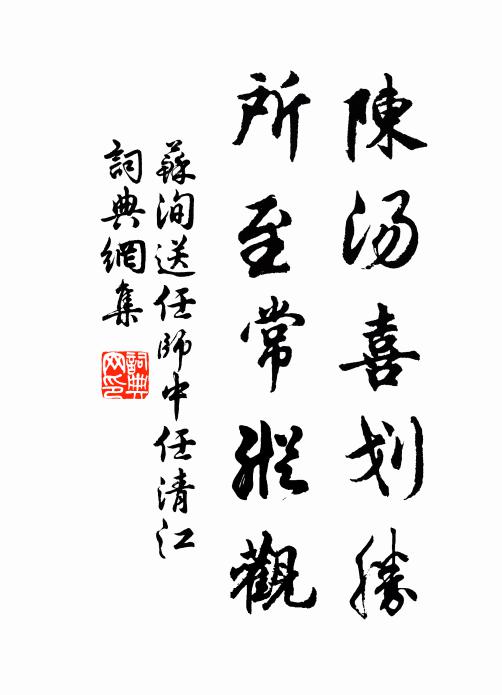 陳汤喜划勝
所至常縱觀
蘇洵送任師中任清江
詞典網集
詞典网印